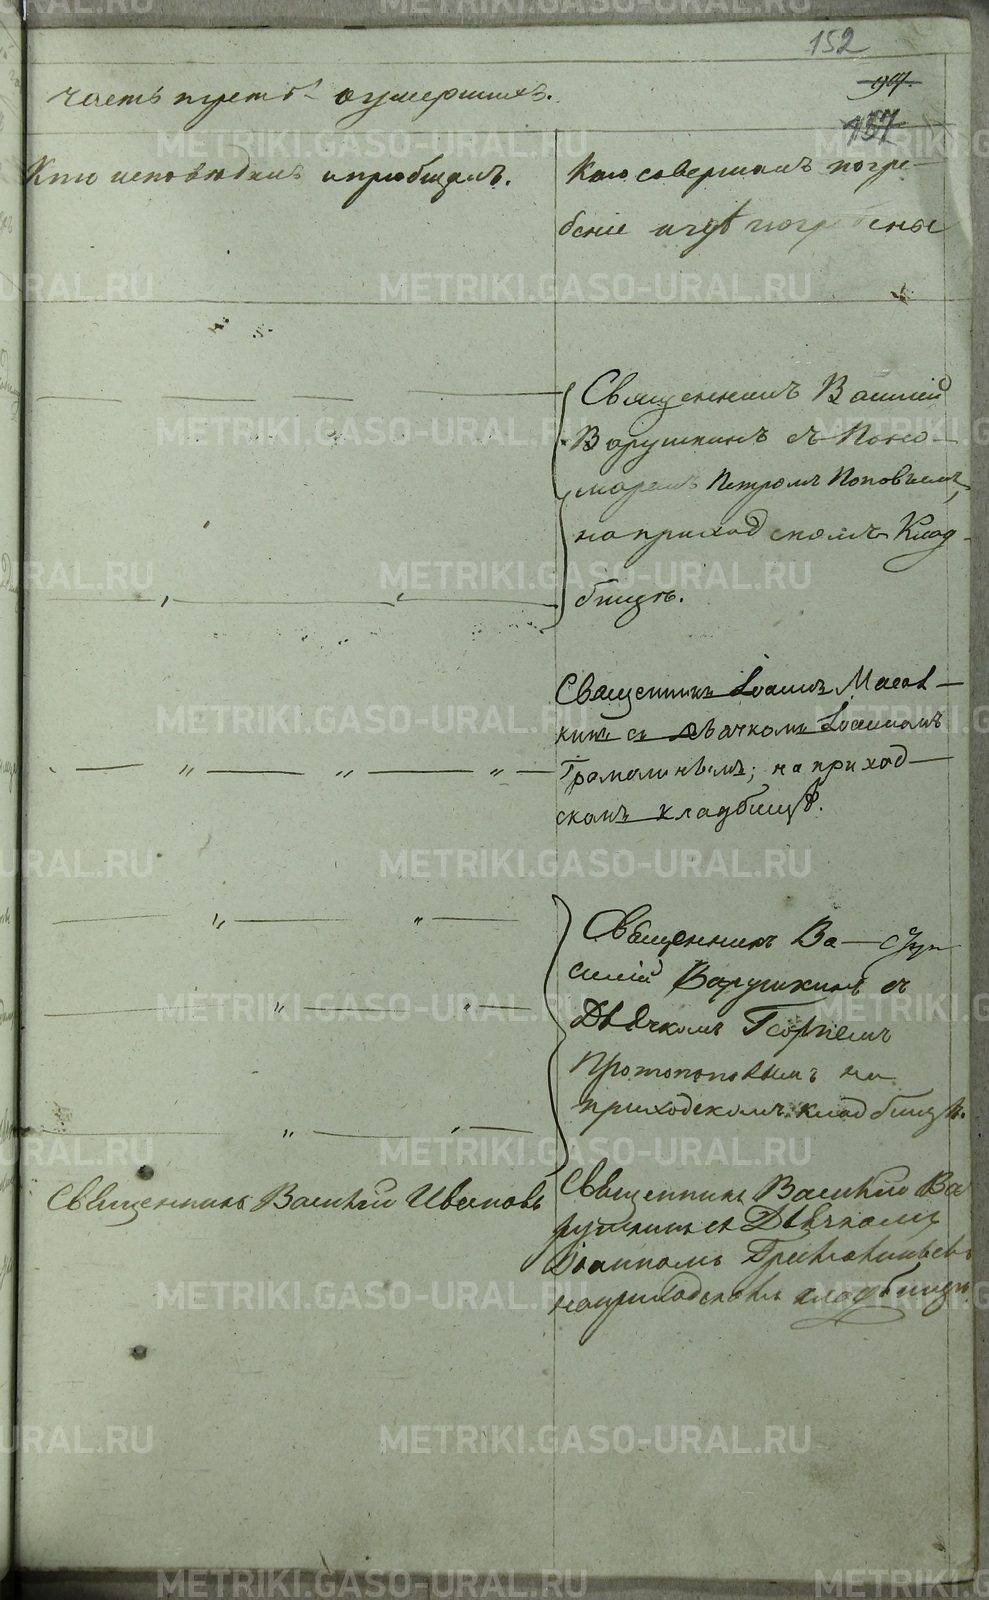 152
157
часть третія о умершихъ.
Кто исповѣдалъ и пріобщалъ.
Кто совершалъ погре-
беніе и гдѣ погребены
Священникъ Василій
Варушкинъ съ Поно-
маремъ Петромъ Поповымъ,
на приходскомъ Клад-
бищѣ.
Священникъ Іоаннъ
съ дьячкомъ Іоанномъ
на приход-
скомъ кладбищѣ.
Священникъ Ва-
силій Варушкинъ съ
Дьячкомъ Георгіемъ
Протопоповымъ на
приходскомъ кладбищѣ.
Священникъ Василій Ивановъ
Священникъ Василій Ва
рушкинъ съ Дьячкомъ
Іоанномъ
на приходскомъ кладбищѣ
METRIKI.GASO-URAL.RU